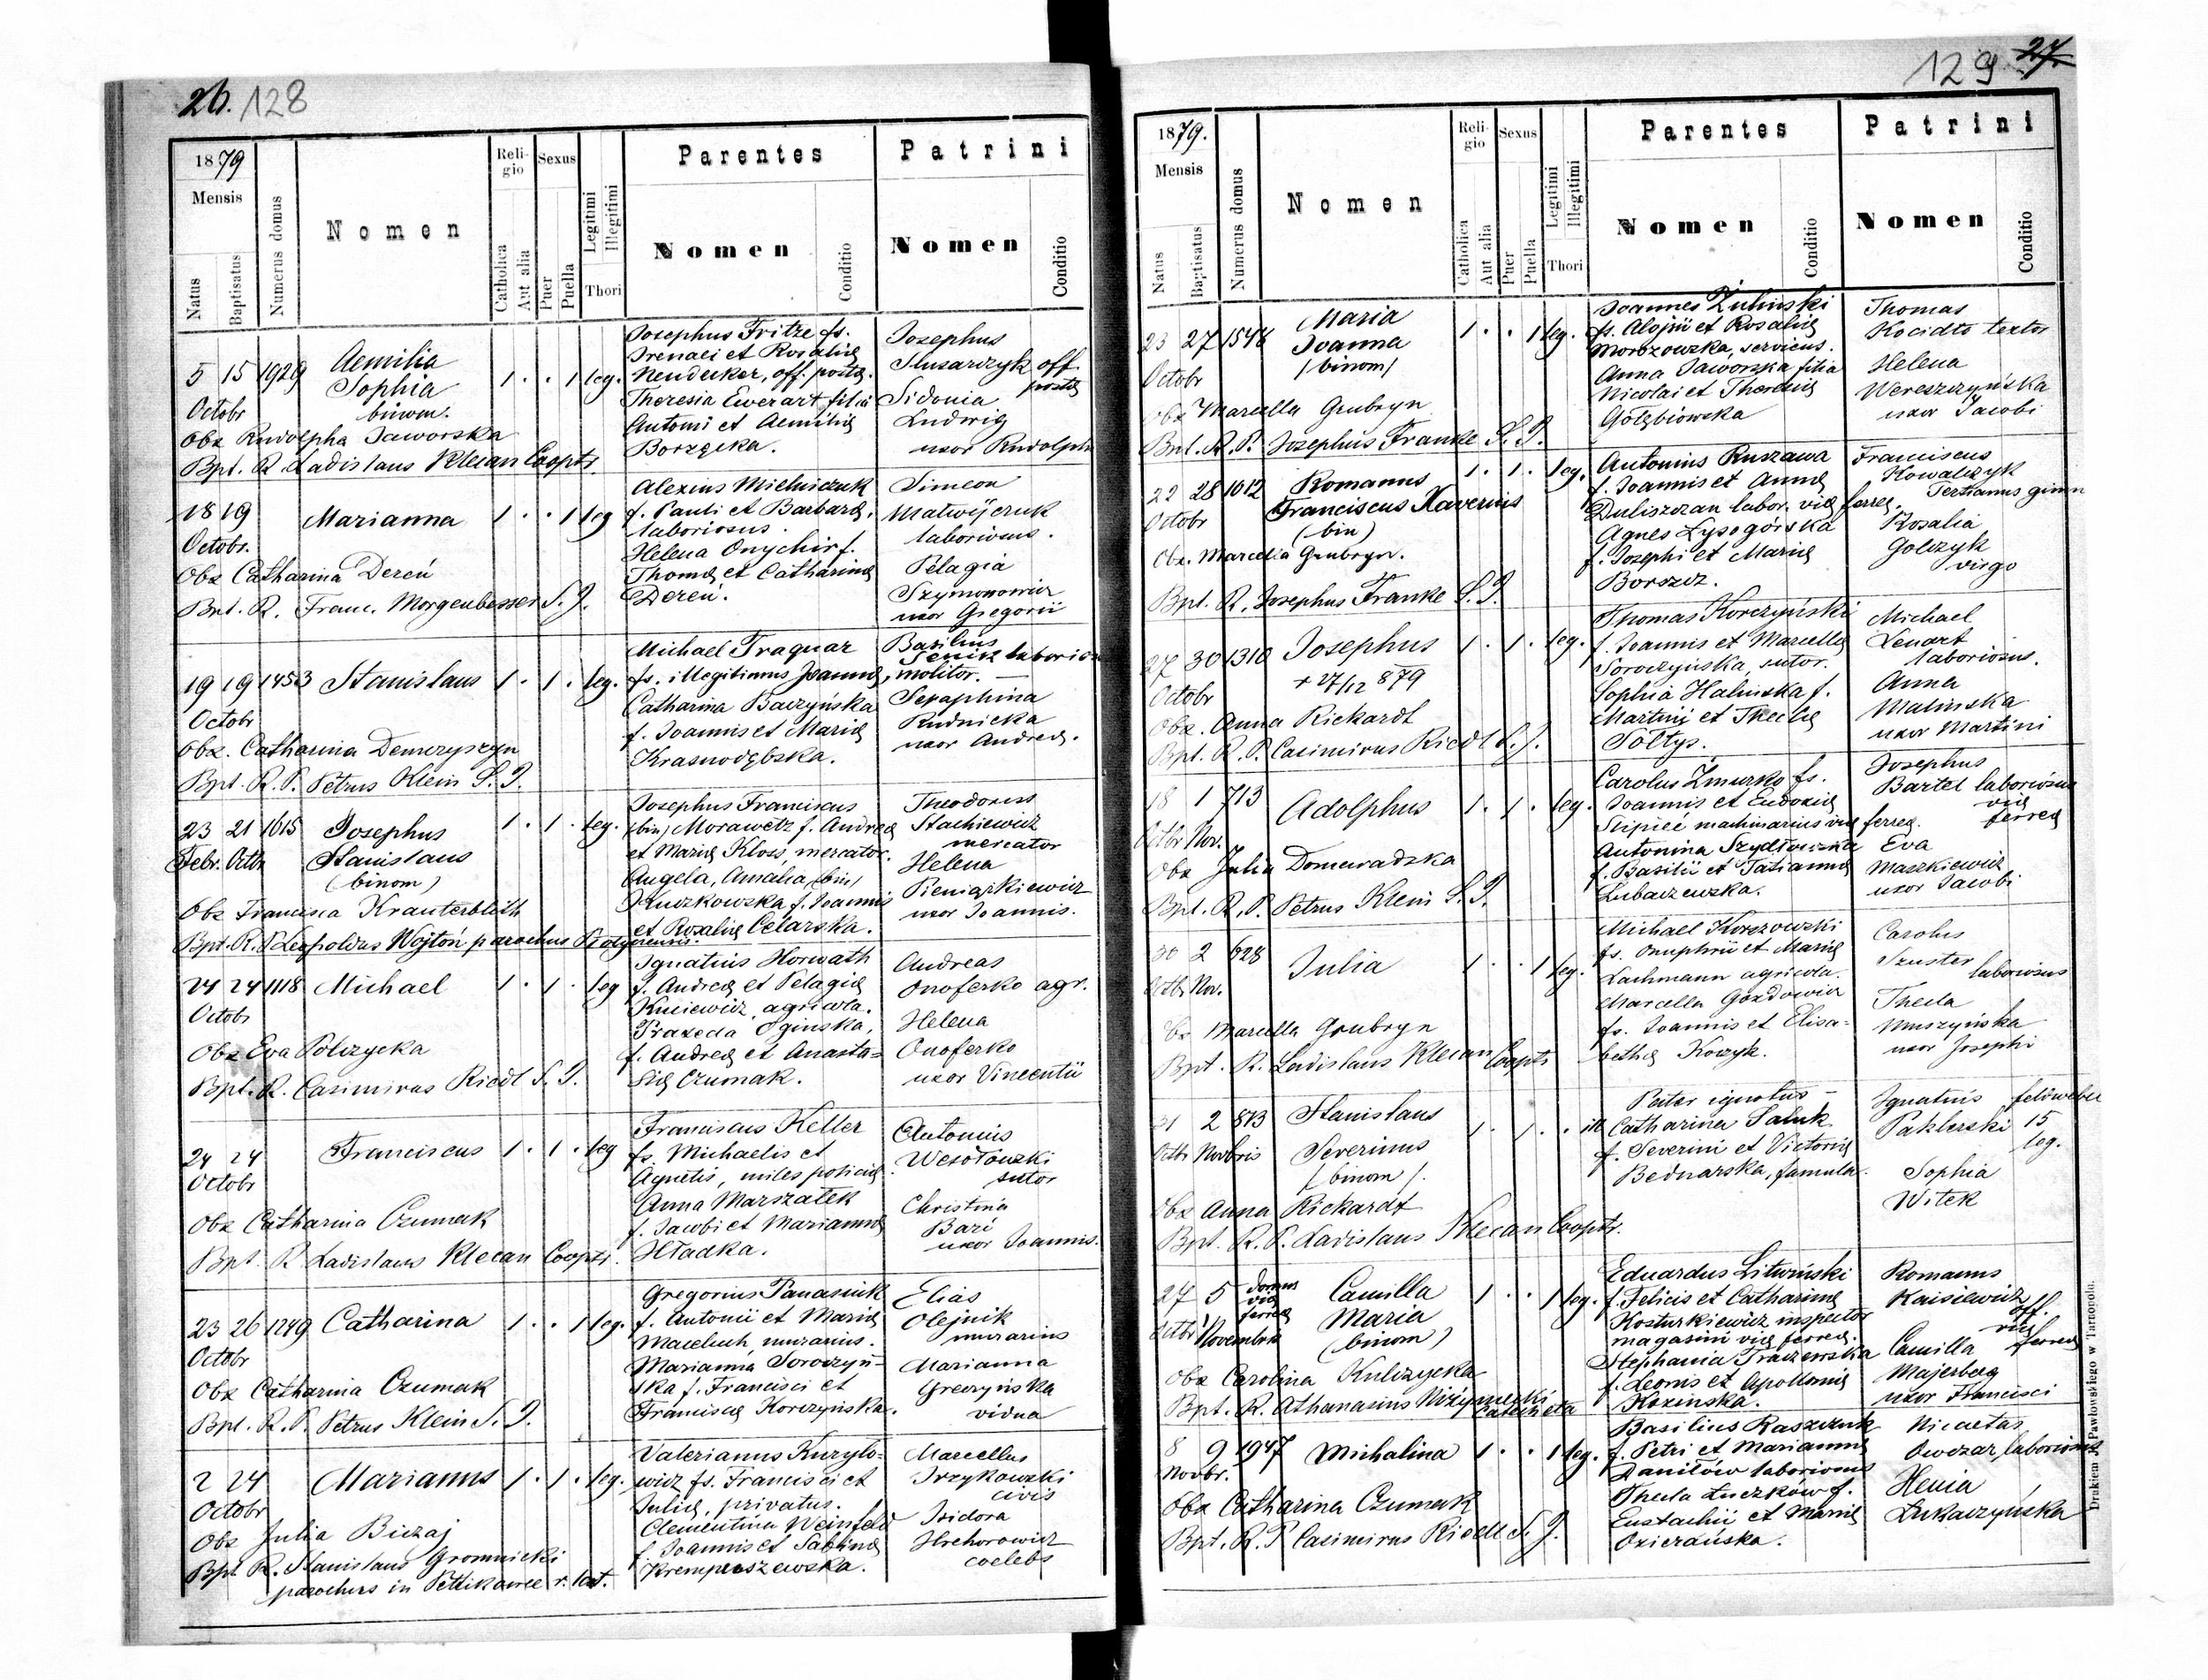 26. 128
1879
Mensis
Natus
Baptisatus
Numerus domus
Nomen
Religio
Catholica
Aut alia
Sexus
Puer
Puella
Legitimi
Illegitimi
Thori
Parentes
Nomen
Conditio
Patrini
Nomen
Conditio
5 15 1929 Aemilia
Sophia
binom.
Octobr
1 . . 1 leg.
Obx Rudolpha Jaworska
Bpt. R. Ladislaus Klecan Cooptr.
Josephus Fritze fs.
Irenaei et Rosaliæ
off. postæ.
Theresia Ewerart filia
Antoni et Aemiliæ
Borzęcka.
Josephus
Slusarczyk off.
postæ
Sidonia
Ludwig
uxor Rudolphi
18 19 Marianna 1 . . 1 leg
Octobr.
Obx Catharina Dereń
Bpt. R. Franc. Morgenbesser S. J.
Alexius Mielniczuk
f. Pauli et Barbaræ,
laboriosus.
Helena Onychir f.
Thomæ et Catharinæ
Dereń.
Simeon
Matwijczuk
laboriosus.
Pelagia
Szymonowicz
uxor Gregorii
19 19 1453 Stanislaus 1 . 1 . leg.
Octobr
Obx. Catharina Demczyszyn
Bpt. R. P. Petrus Klein S. J.
Michael Traguar
fs. illegitimus Joannæ, molitor.
Catharina Baczyńska
f. Joannis et Mariæ
Krasnodębska.
Basilius
Senik laborios
Seraphina
Rudnicka
uxor Andreæ.
23 21 1615 Josephus 1 . 1 . leg.
Febr. Octbr Stanislaus
(binom)
Obx Francisca Krauterblüth
Bpt. R. P. Leopoldus Wojtoń parochus
Josephus Franciscus
(bin) Morawetz f. Andreæ
et Mariæ Kloss, mercator.
Angela, Amalia (bin)
Kruczkowska f. Joannis
et Rosaliæ Celarska.
Theodorus
Stachiewicz
mercator
Helena
Pieniążkiewicz
uxor Joannis.
24 24 1118 Michael 1 . 1 . leg
Octobr
Obx Eva Polczycka
Bpt. R. Casimirus Riedl S. J.
Ignatius Horwath
f. Andreæ et Pelagiæ
Kniewicz, agricola.
Praxeda Oginska,
f. Andreæ et Anasta=
siæ Czumak.
Andreas
Onoferko agr.
Helena
Onoferko
uxor Vincentii
24 24 Franciscus 1 . 1 . leg
Octobr
Obx Catharina Czumak
Bpt. R Ladislaus Klecan Cooptr.
Franciscus Keller
fs. Michaelis et
Agnetis, miles policiæ
Anna Marszałek
f. Jacobi et Mariannæ
Hładka.
Antonius
Wesołowski
sutor
Christina
Bazi
uxor Joannis.
23 26 1249 Catharina 1 . . 1 leg.
Octobr
Obx Catharina Czumak
Bpt. R. P. Petrus Klein S. J.
Gregorius Panasiuk
f. Antonii et Mariæ
Maceluch, murarius.
Marianna Soroczyń=
ska f. Francisci et
Franciscæ Korczyńska.
Elias
Olejnik
murarius
Marianna
Greczyńska
vidua
2 24 Marianus 1 . 1 . leg.
Octobr
Obx Julia Biczaj
Bpt R. Stanislaus Gromnicki
parochus in Petlikowce r. lat.
Valerianus Kuryło=
wicz fs. Francisci et
Juliæ, privatus.
Clementina Weinfeld
f. Joannis et Sabinæ
Krempuszewska.
Marcellus
Irzykowski
civis
Isidora
Hrehorowicz
coelebs
129 27
1879.
Mensis
Natus
Baptisatus
Numerus domus
Nomen
Religio
Catholica
Aut alia
Sexus
Puer
Puella
Legitimi
Illegitimi
Thori
Parentes
Nomen
Conditio
Patrini
Nomen
Conditio
23 27 1548 Maria
Joanna
/binom/
1 . . 1 leg.
Octobr
Obx Marcella Grubryn
Bpt. R. P. Josephus Franke S. J.
Joannes Żulinski
fs. Aloisii et Rosaliæ
Morozowska, servicus.
Anna Jaworska filia
Nicolai et Theclæ
Gołębiowska
Thomas
textor
Helena
Wereszczyńska
uxor Jacobi
22 28 1012 Romanus 1 . 1 . leg.
Octobr Franciscus Xaverius
(bin)
Obx. Marcella Grubryn.
Bpt. R. Josephus Franke S. J.
Antonius Ruszawa
f. Joannis et Annæ
Duliszczan labor. viæ ferreæ.
Agnes Łysogórska
f. Josephi et Mariæ
Borszcz.
Franciscus
Kowalczyk
Tertianus gimn
Rosalia
Golczyk
virgo
27 30 1310 Josephus 1 . 1 . leg.
Octobr + 27/12 879
Obx. Anna Rickardt
Bpt. R. P. Casimirus Riedl S. J.
Thomas Korczyński
f. Joannis et Marcellæ
Soroczyńska, sutor.
Sophia Halinska f.
Martini et Theclæ
Sołtys.
Michael
Lenart
laboriosus.
Anna
Malinska
uxor Martini
18 1 713 Adolphus 1 . 1 . leg.
Octbr Nov.
Obx Julia Domaradzka
Bpt. R. P. Petrus Klein S. J.
Carolus Żmurko fs.
Joannis et Eudoxiæ
Stipieć machinarius viæ ferreæ.
Antonina Szydłowska
f. Basilii et Tatiannæ
Lubaczewska.
Josephus
Bartel laboriosus
viæ
ferreæ
Eva
Maszkiewicz
uxor Jacobi
30 2 628 Julia 1 . . 1 leg.
Octbr Nov.
Obx Marcella Grubryn
Bpt. R. Ladislaus Klecan Cooptr
Michael Korzowski
fs. Onuphrii et Mariæ
Lachmann agricola.
Marcella Gozdowicz
fs. Joannis et Elisa=
bethæ Koczyk.
Carolus
Szuster
laboriosus
Thecla
Muszyńska
uxor Josephi
31 2 873 Stanislaus 1 . 1 . ill
Octbr Novbris Severinus
/binom/.
Obx Anna Rickardt
Bpt. R. P. Ladislaus Klecan Cooptr.
Pater ignotus –
Catharina Saluk
f. Severini et Victoriæ
Bednarska, famula.
Ignatius feldwebel
Paklerski 15
leg.
Sophia
Witek
27 5 domus
viæ
ferreæ
Camilla 1 . . 1 leg.
Octbr Novembris Maria
(binom)
Obx Carolina Kulczycka
Bpt. R. Athanasius
Catecheta
Eduardus Litwiński
f. Felicis et Catharinæ
Kosturkiewicz inspector
magasini viæ ferreæ.
Stephania Traczewska
f. Leonis et Apolloniæ
Kozinska.
Romanus
Kaisiewicz
off.
viæ
ferreæ
Camilla
Majerberg
uxor Francisci
8 9 1947 Michalina 1 . . 1 leg.
Novbr.
Obx Catharina Czumak
Bpt. R. P Casimirus Riedl S. J.
Basilius Raszczuk
f. Petri et Mariannæ
Daniłów laboriosus
Thecla Łuczków f.
Eustachii et Mariæ
Ozierańska.
Nicaetas
Owczar, laboriosus
Henia
Łukaczyńska
Drukiem J. Pawłowskiego w Tarnopolu.